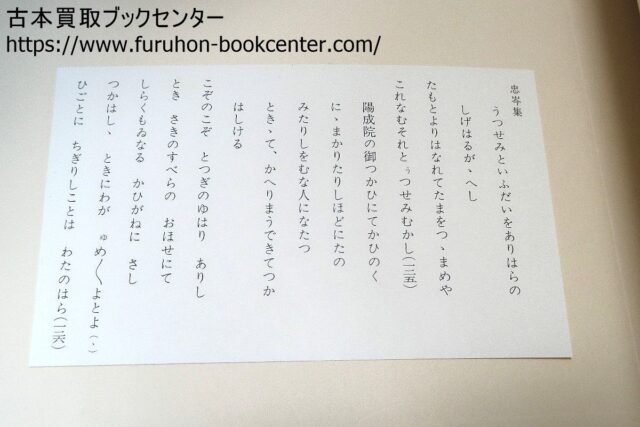 古本買取ブックセンター
https://www.furuhon-bookcenter.com/
忠岑集
うつせみといふだいをありはらの
しげはるがゝへし
たもとよりはなれてたまをつゝまめや
これなむそれとぅつせみむかし(一二五)
陽成院の御つかひにてかひのく
にゝまかりたりしほどにたの
みたりしをむな人になたつ
ときゝて、かへりまうできてつか
はしける
こぞのこぞ とつぎのゆはり ありし
とき さきのすべらの おほせにて
しらくもゐなる かひがねに さし
つかはしゝ ときにわが ゅめ〳〵よとよ(、)
ひごとに ちぎりしことは わたのはら(一二六)